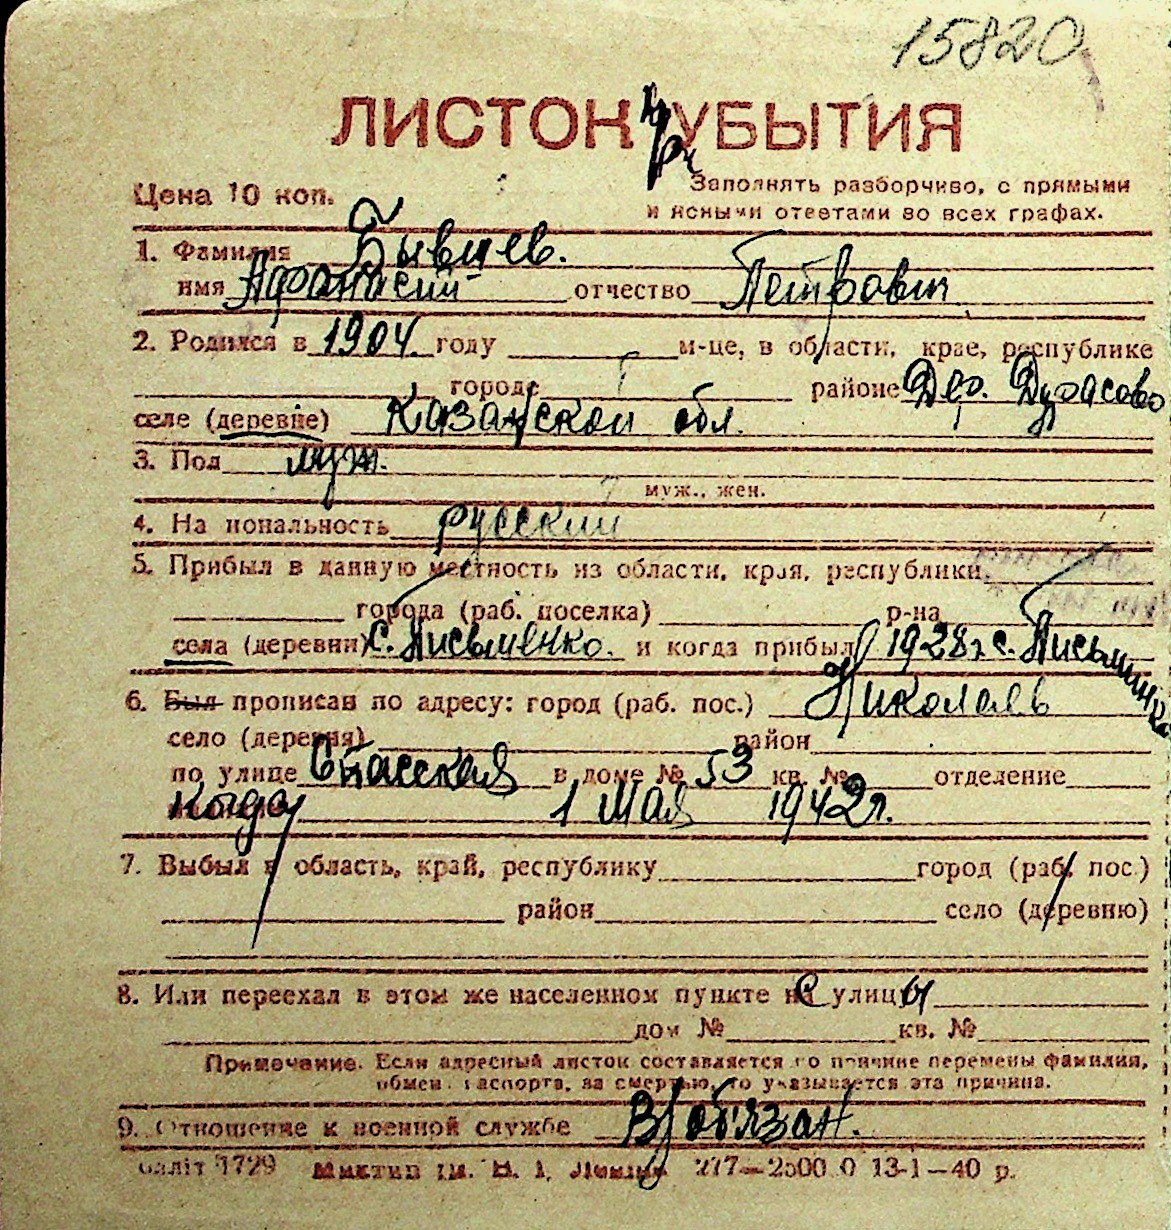 15820
ЛИСТОК УБЫТИЯ
Цена 10 коп.
Заполнять разборчиво, с прямыми
и ясными ответами во всех графах.
1. Фамилия Бывшев.
имя Афанасий отчество Петрович
2. Родился в 1904 году м-це, в области, крае, республике
городе районе Дер. Дурасово
селе (деревне) Казанской обл.
3. Пол муж.
муж., жен.
4. Национальность русский
5. Прибыл в данную местность из области, края, республики
города (раб. поселка) р-на
села (деревни) с. Письменко. и когда прибыл 1928 г. с.
6. Был прописан по адресу: город (раб. пос.) Николаев
село (деревня) район
по улице Спасская в доме № 53 кв. № отделение
когда 1 Мая 1942 г.
7. Выбыл в область, край, республику город (раб. пос.)
район село (деревню)
8. Или переехал в этом же населенном пункте с улицы
дом № кв. №
Примечание. Если адресный листок составляется по причине перемены фамилии,
обмена паспорта, за смертью, то указывается эта причина.
9. Отношение к военной службе В/обязан.
1729 277—2500.0 13-1—40 р.